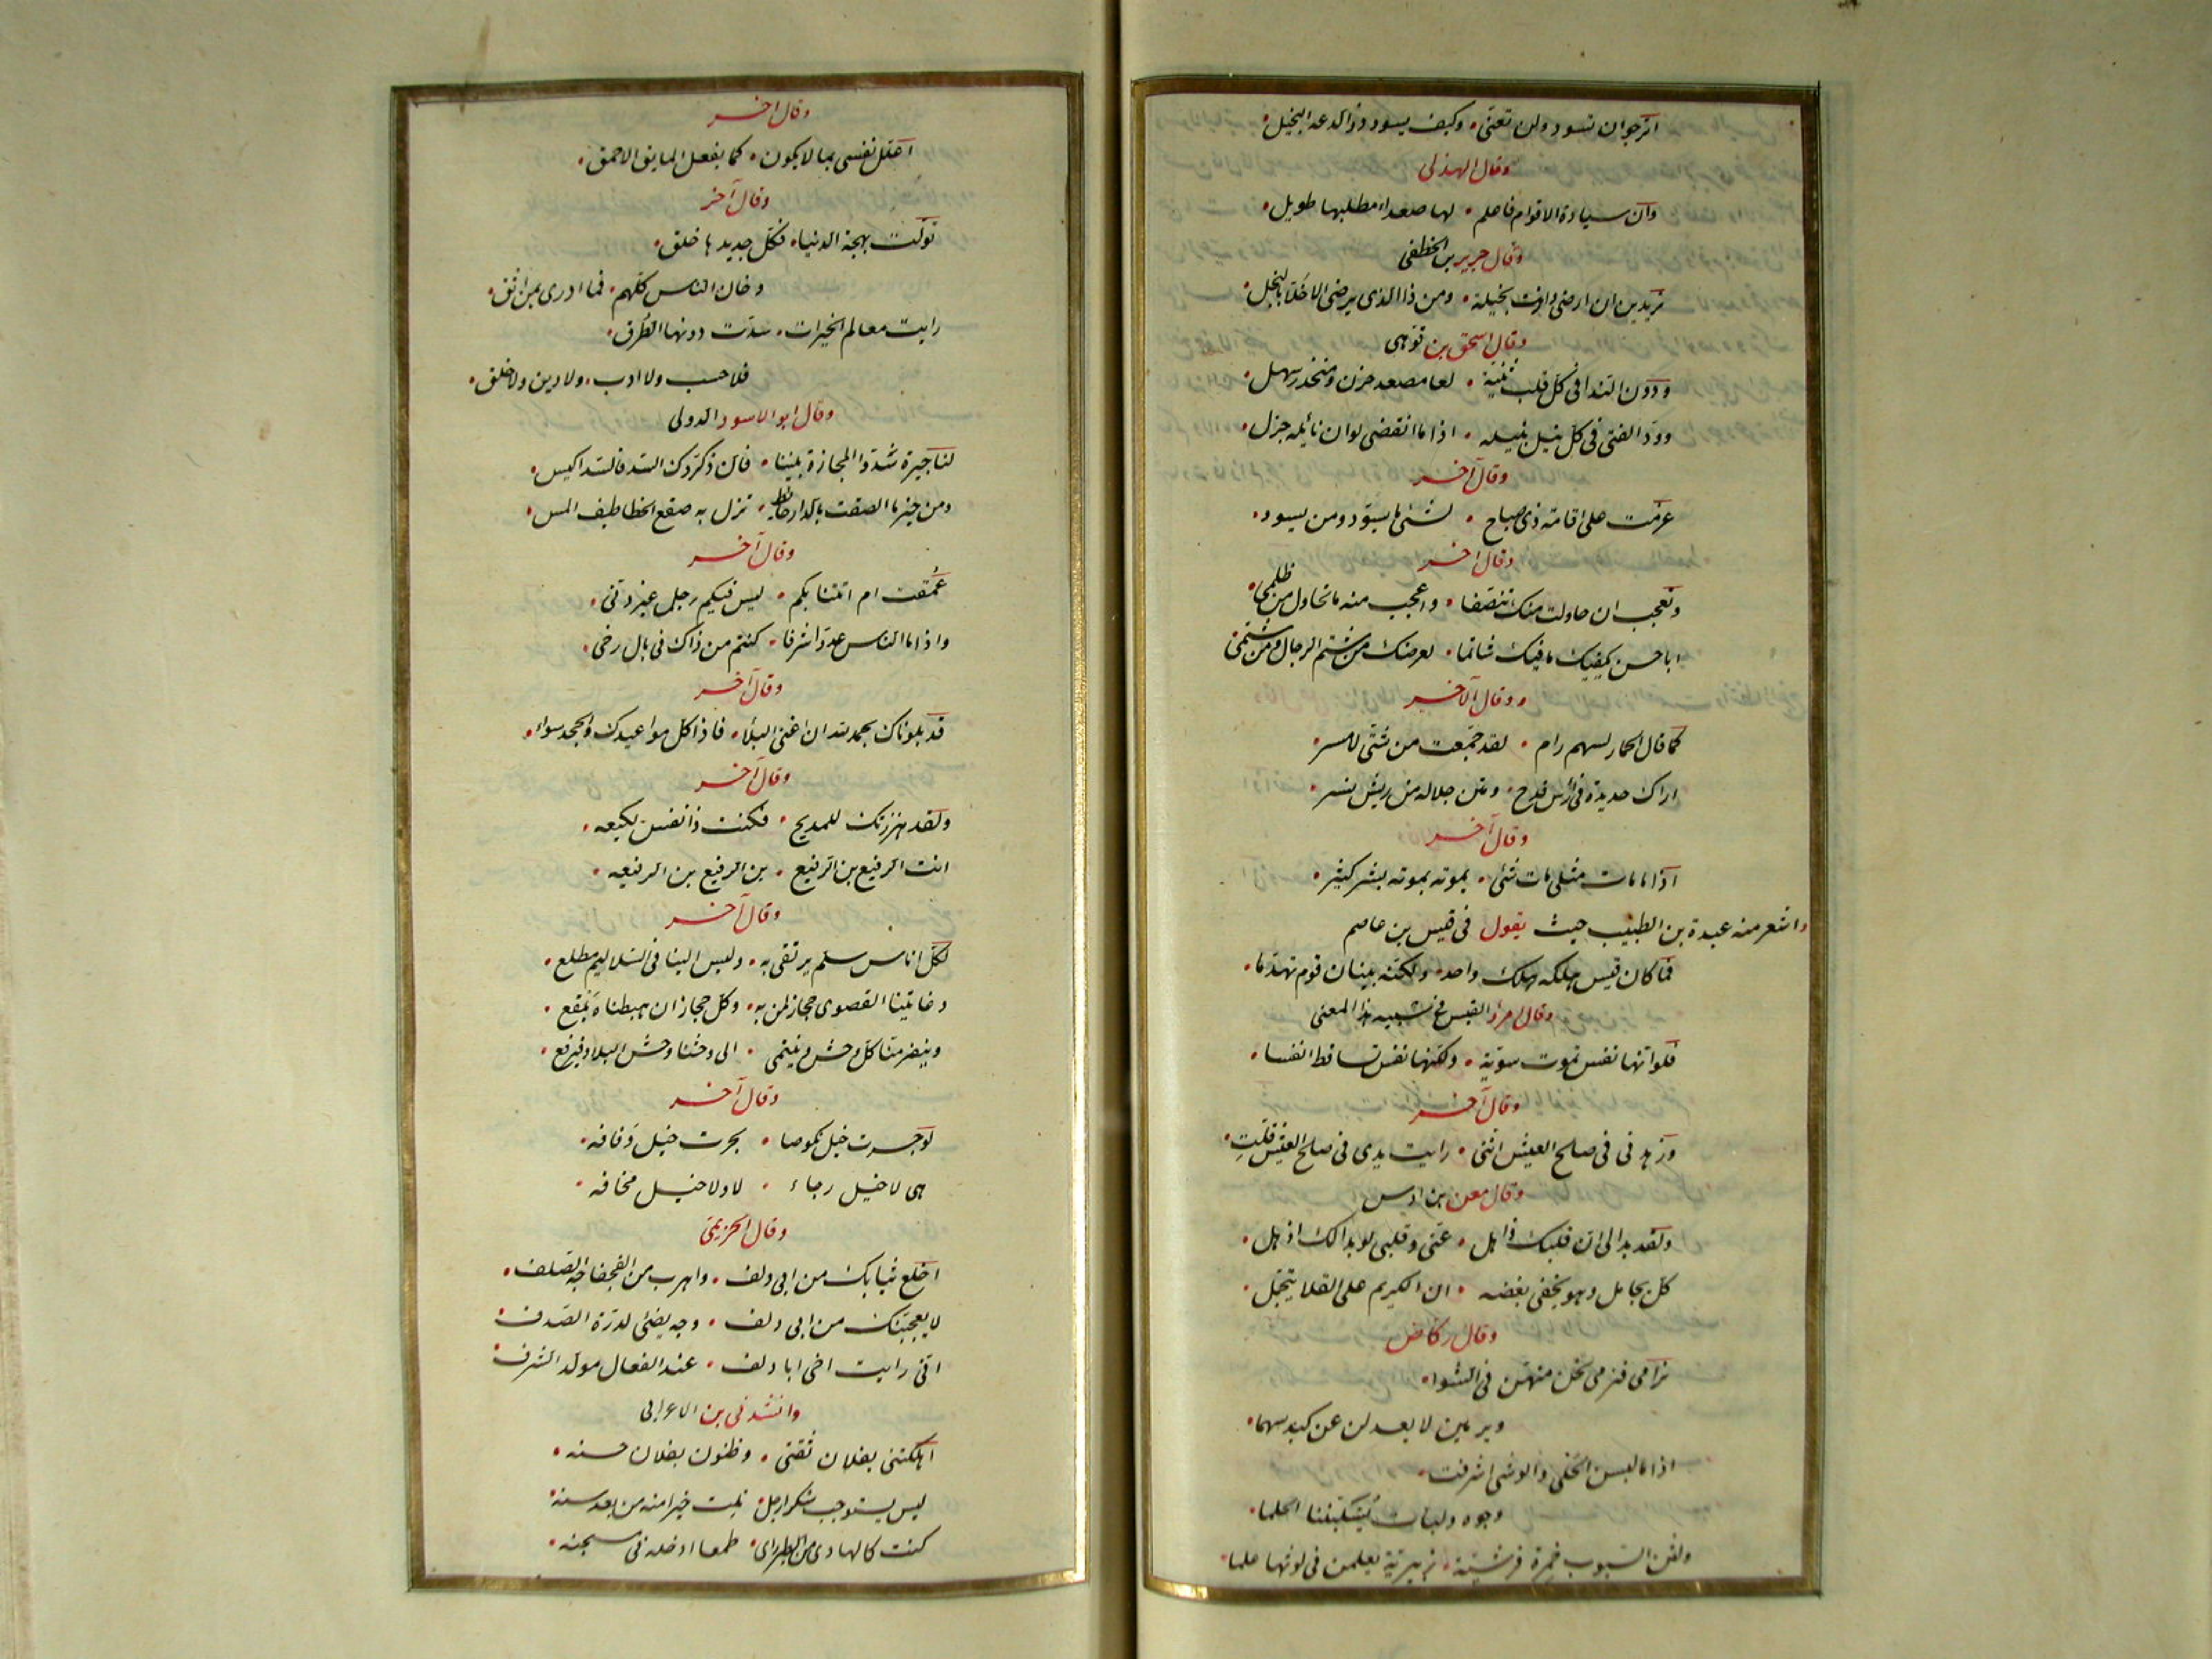 اترجوان تسود ولن تعنى • وكيف يسود ذو الدعه البخيل •
وقال الهذلى
وان سيادة الاقوام فاعلم • لها صعداء مطلبها طويل •
وقال جرير بن الخطفى
تريدين ان ارضى وانت بخيلة • ومن ذا الذى يرضى الاخلاء بالبخل •
وقال اسحق بن
ودون الندا فى كل قلب ثنية • لها مصعد حزن ومنحدر سهل •
وود الفتى فى كل نيل ينيله • اذا ما انقضى لو ان نائله جزل •
وقال آخر
عزمت على اقامة ذى صباح • لشئ ما يسود من يسود •
وقال اخر
وتعجب ان حاولت منك تنصفا • واعجب منه ما تحاول من ظلمى •
ابا حسن يكفيك ما فيك شاتما • لعرضك من شتم الرجال ومن شتمى
وقال الآخر
كما قال الحمار لسهم رام • لقد جمعت من شتى لامر •
اراك حديدة فى رأس قدح • ومتن جلاله من ريش نسر •
وقال آخر
اذا ما مات مثلى مات شئ • يموت بموته بشر كثير •
واشعر منه عبدة بن الطبيب حيث يقول فى قيس بن عاصم
فما كان قيس هلكه هلك واحد • ولكنه بنيان قوم تهدما •
وقال امرؤ القيس فى شبيه بهذا المعنى
فلو انها نفس تموت سوية • ولكنها نفس تساقط انفسا •
وقال آخر
وزهدنى فى صالح العيش اننى • رايت يدى فى صالح العيش قلت •
وقال معن بن اوس
ولقد بدا لى ان قلبك ذاهل • عنى وقلبى لو بدا لك اذهل •
كل يجامل وهو يخفى بغضه • ان الكريم على القلا يتجمل •
وقال ركاض
نرامى فنرمى نحن منهن فى الشوا •
ويرمين لا يعدلن عن كبد سهما •
اذا ما لبسن الحلى والوشى اشرقت •
وجوه ولبات يسلبننا الحلما •
ولثن السبوب خمرة قرشية • زبيرية يعلمن فى لوثها علما •
وقال اخر
اعلل نفسى بما لا يكون • كما يفعل المايق الاحمق •
وقال آخر
تولت بهجة الدنيا • فكل جديدها خلق •
وخان الناس كلهم • فما ادرى بمن اثق •
رايت معالم الخيرات • سدت دونها الطرق •
فلا حسب ولا ادب • ولا دين ولا خلق •
وقال ابو الاسود الدولى
لنا جيرة سدوا المجازة بيننا • فان ذكروك السد فالسد اكيس •
ومن خير ما الصقت بالدار حائط • تزل به صقع الخطاطيف املس •
وقال آخر
عمقت ام اتتنا بكم • ليس فيكم رجل غير دنى •
واذا ما الناس عدوا شرفا • كنتم من ذاك فى بال رخى •
وقال آخر
قد بلوناك بحمد الله ان اغنى البلاء • فاذا كل مواعيدك والجحد سواء •
وقال آخر
ولقد هززتك للمديح • فكنت ذا نفس لكيعه •
انت الرقيع بن الرقيع • بن الرقيع بن الرقيعه •
وقال آخر
لكل اناس سلم يرتقى به • وليس الينا فى السلاليم مطلع •
وغايتنا القصوى حجاز لمن به • وكل حجاز ان هبطناه بلقع •
وينفر منا كل وحش وينتمى • الى وحشنا وحش البلاد فيرتع •
وقال آخر
لو جرت خيل نكوصا • لجرت خيل ذفافه •
هى لا خيل رجاء • لا ولا خيل مخافه •
وقال الخزيمى
اخلع ثيابك من ابى دلف • واهرب من الفجفاجه الصلف •
لا يعجبنك من ابى دلف • وجه يضئ لدرة الصدف •
انى رايت اخى ابا دلف • عند الفعال مولد الشرف •
وانشدنى بن الاعرابى
اهلكتنى بفلان ثقتى • وظنون بفلان حسنه •
ليس يستوجب شكرا رجل • نلت خيرا منه من بعد سنه •
كنت كالهادى من الطير راى • طمعا ادخله فى سجنه •